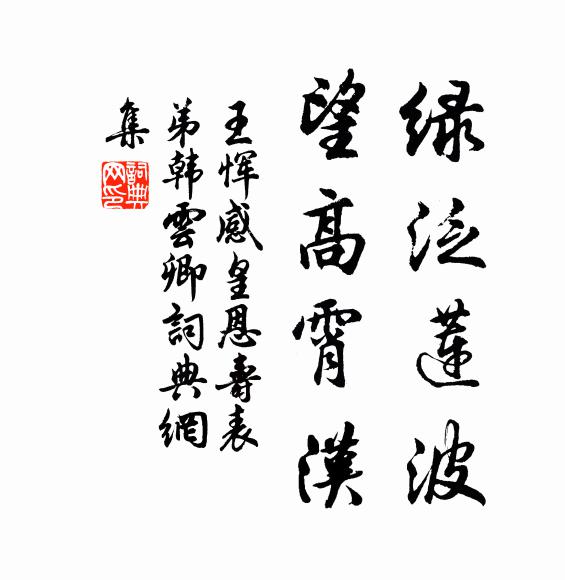 绿泛莲波
望高霄漢
王恽感皇恩壽表
弟韩雲卿詞典網
集
詞典網